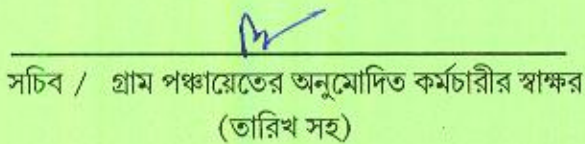 সচিব / গ্রাম পঞ্চায়েতের অনুমোদিত কর্মচারীর স্বাক্ষর
(তারিখ সহ)